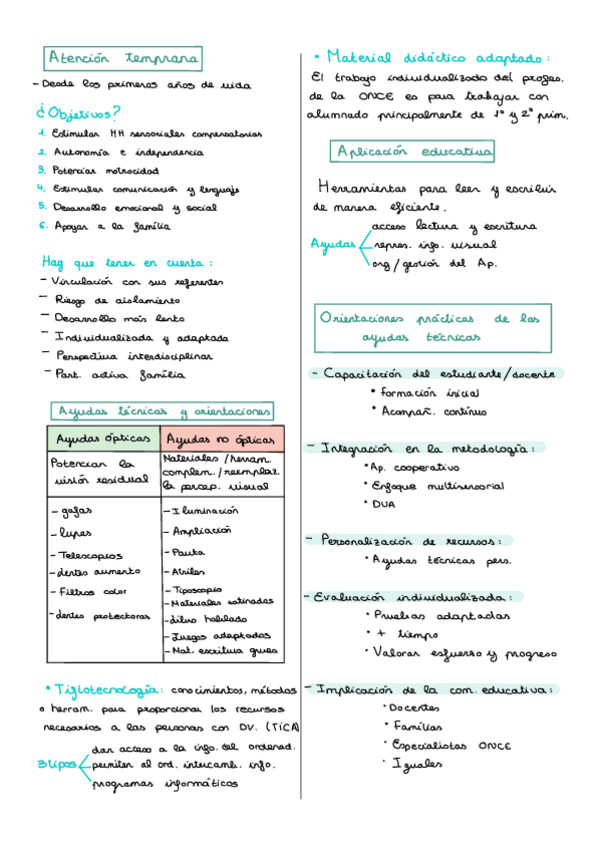 Atención temprana
- Desde los primeros años de vida
¿Objetivos?
1. Estimular HH sensoriales compensatorias
2. Autonomía e independencia
3. Potenciar motrocidad
4. Estimular comunicación y lenguaje
5. Desarrollo emocional y social
6. Apoyar a la familia
Hay que tener en cuenta:
- Vinculación con sus referentes
- Riesgo de aislamiento
- Desarrollo más lento
- Individualizada y adaptada
- Perspectiva interdisciplinar
- Part. activa familia
Ayudas técnicas y orientaciones
Ayudas ópticas
Potenciar la
visión residual
- gafas
- lupas
- Telescopios
- lentes aumento
- Filtros color
- lentes protectoras
Ayudas no ópticas
Materiales/herram.
complem./reemplaz.
la percep. visual
- Iluminación
- Ampliación
- Pauta
- Atriles
- Tiposcopio
- Materiales satinadas
- libro hablado
- Juegos adaptados
- Mat. escritura gruesa
• Tiflotecnología: conocimientos, métodos
o herram. para proporcionar los recursos
necesarios a las personas con DV. (TICA)
3 tipos
dan acceso a la info. del ordenad.
permiten al ord. intercamb. info.
programas informáticos
• Material didáctico adaptado:
El trabajo individualizado del profes.
de la ONCE es para trabajar con
alumnado principalmente de 1º y 2º prim.
Aplicación educativa
Herramientas para leer y escribir
de manera eficiente.
Ayudas
acceso lectura y escritura
repres. info. visual
org/gestión del Ap.
Orientaciones prácticas de las
ayudas técnicas
- Capacitación del estudiante/docente
• formación inicial
• Acompañ. continuo
- Integración en la metodología:
• Ap. cooperativo
• Enfoque multisensorial
• DUA
- Personalización de recursos:
• Ayudas técnicas pers.
- Evaluación individualizada:
• Pruebas adaptadas
• + tiempo
• Valorar esfuerzo y progreso
- Implicación de la com. educativa:
• Docentes
• Familias
• Especialistas ONCE
• Iguales